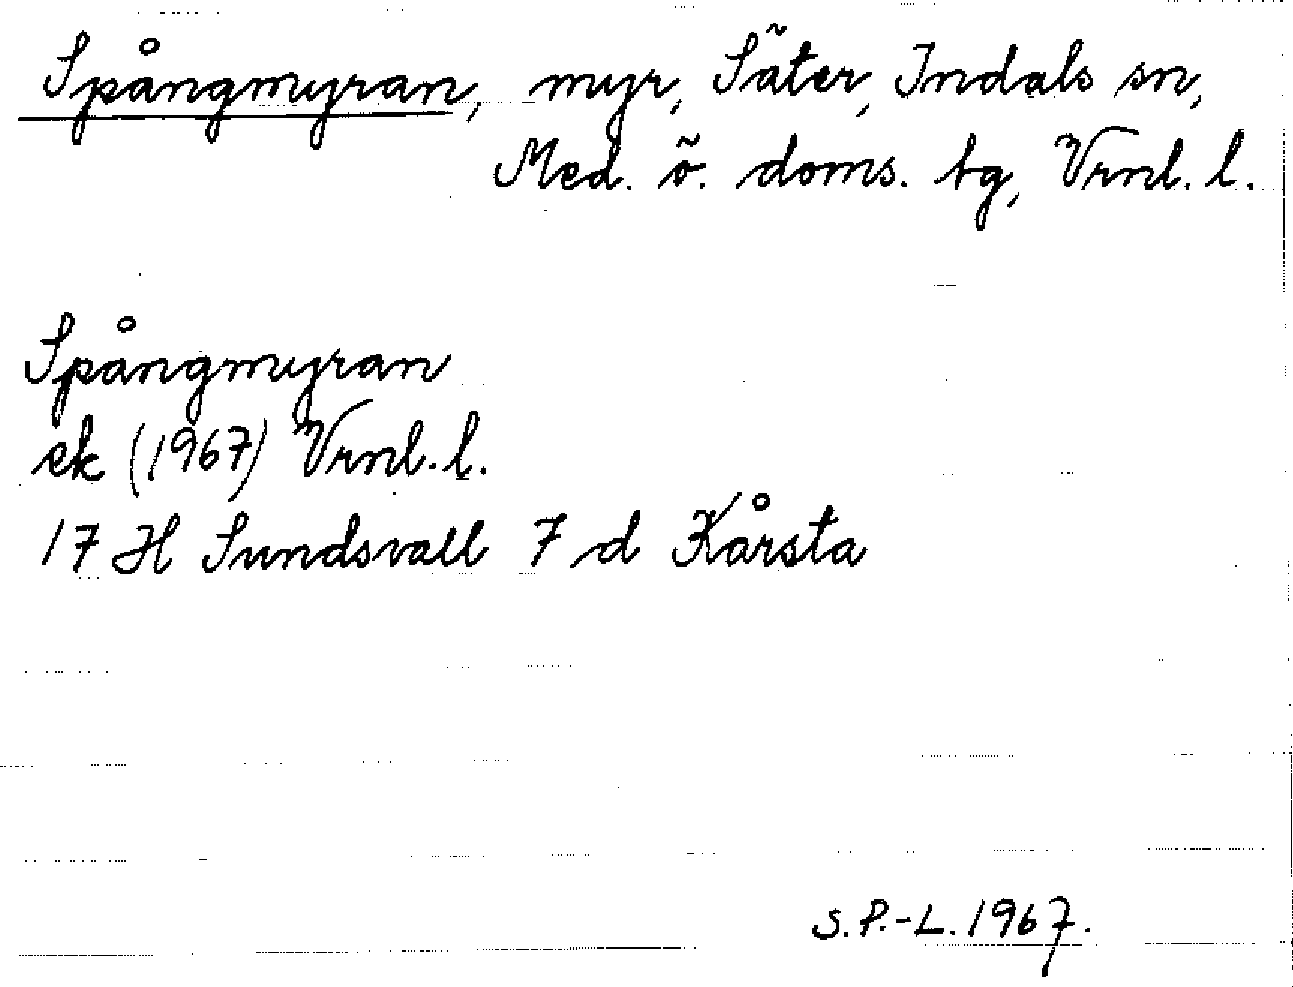 Spångmyran, myr, Säter, Indals sn,
Med. ö. doms. tg, Vrnl. l.
Spångmyran
ek (1967) Vrnl. l.
17 H Sundsvall 7 d Kårsta
S.P.-L. 1967.